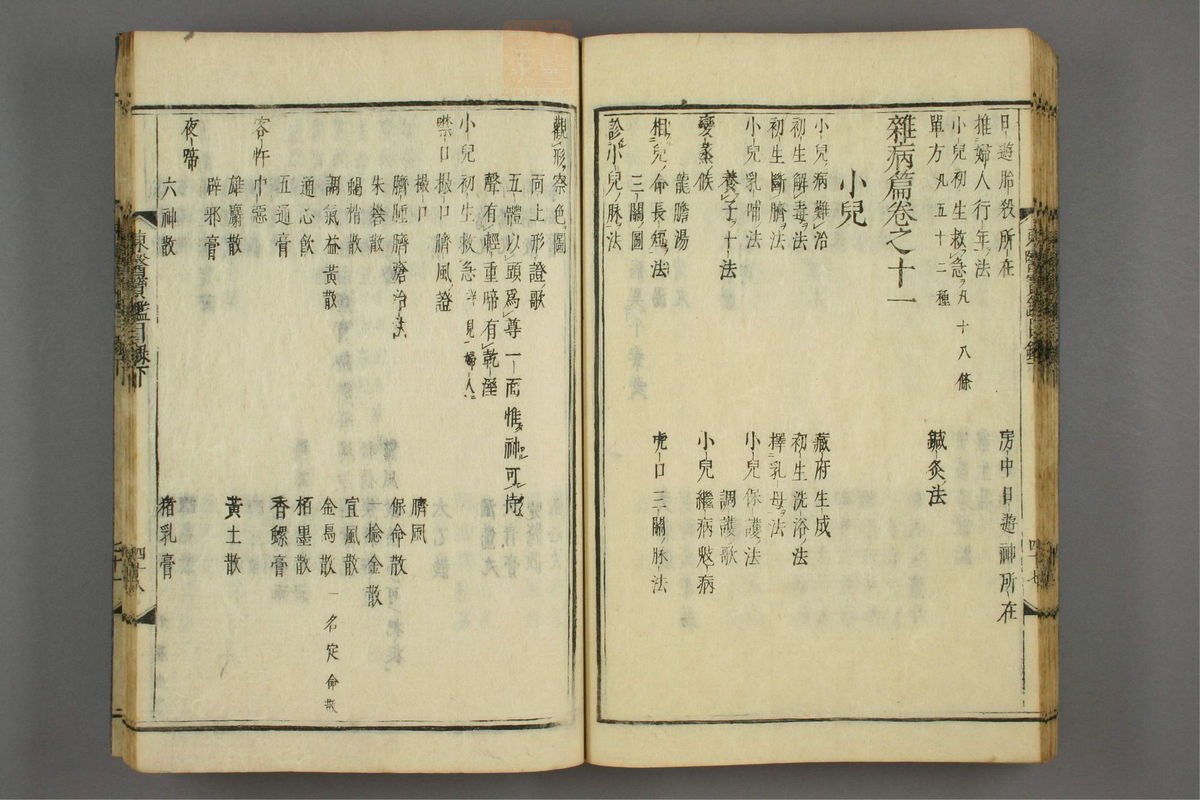 日遊胎殺所在
房中日遊神所在
推婦人行年法
小兒初生救急 凡十八條
單方 凡五十二種
鍼灸法
雜病篇卷之十一
小兒
小兒病難治
藏府生成
初生解毒法
初生洗浴法
初生斷臍法
擇乳母法
小兒乳哺法
小兒保護法
養子十法
調護歌
變蒸候
小兒繼病鬾病
龍膽湯
相兒命長短法
虎口三關脉法
三關圖
診小兒脉法
觀形察色圖
面上形證歌
五體以頭爲尊一面惟神可恃
聲有輕重啼有乾溼
小兒初生救急 詳見婦人
噤口撮口臍風證
撮口
臍風
臍腫臍瘡治法
保命散
朱蓉散
撚金散
蝎梢散
宜風散
調氣益黃散
金烏散 一名定命散
通心飲
栢墨散
五通膏
香螺膏
客忤
中惡
黃土散
雄麝散
辟邪膏
夜啼
六神散
猪乳膏
東醫寶鑑目錄下
四十八